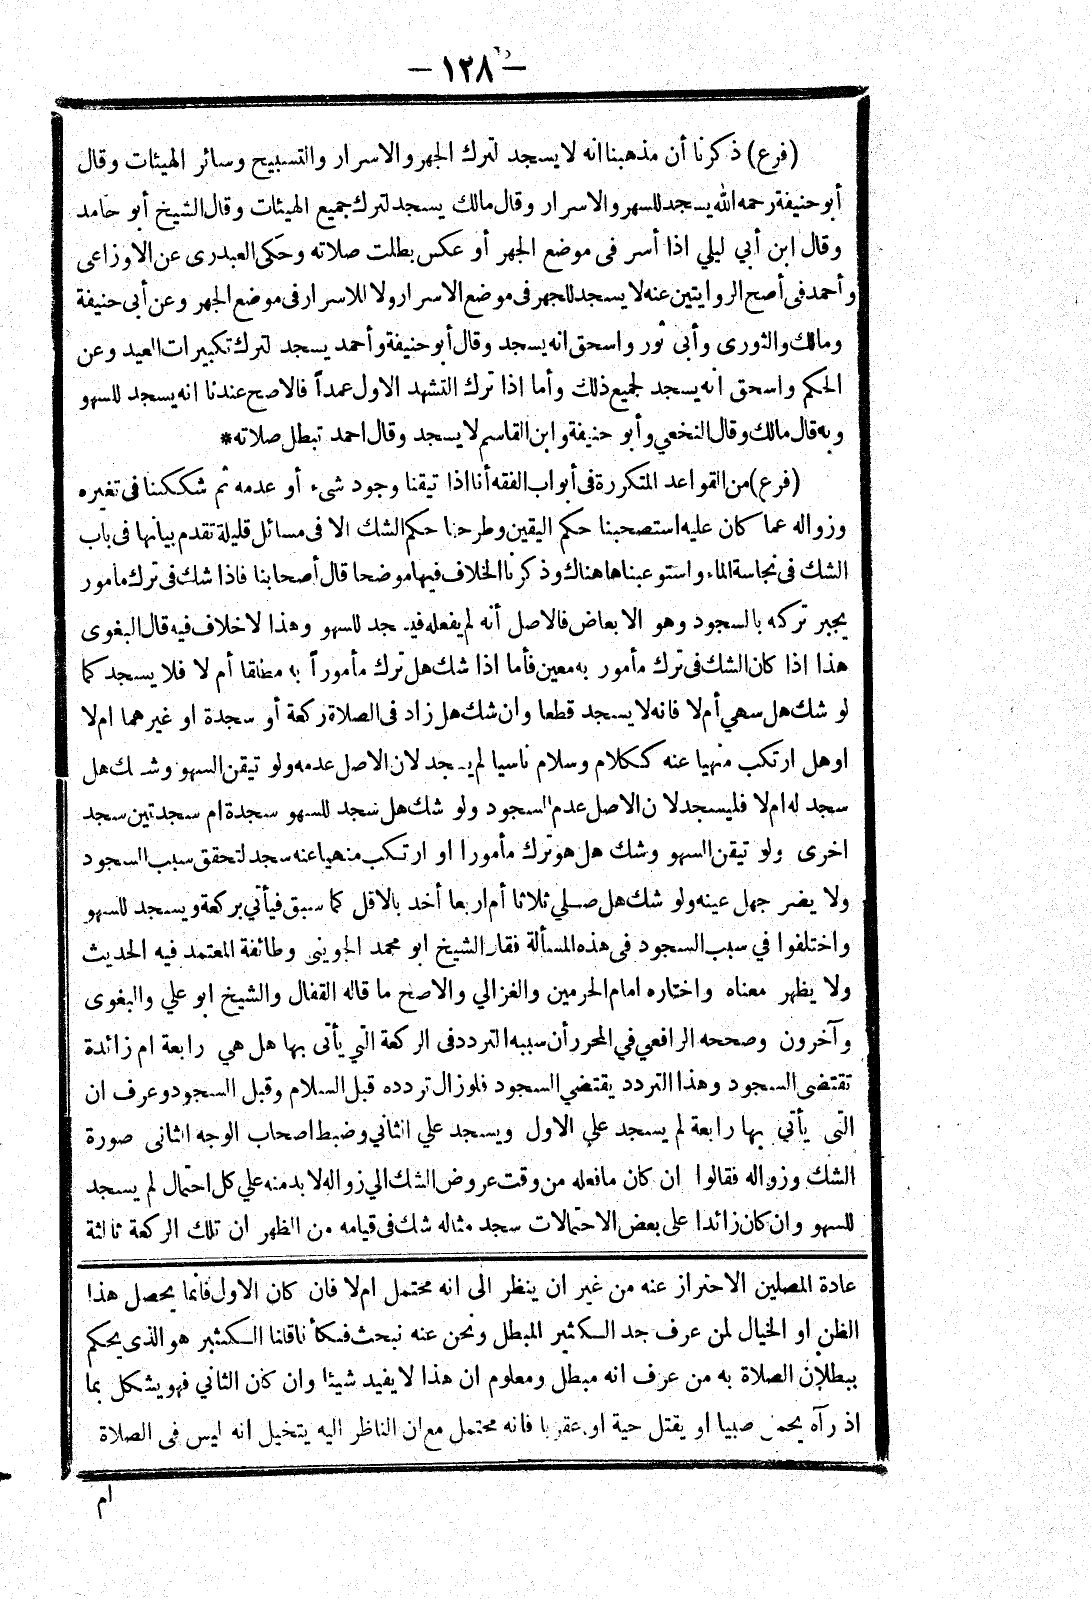 — ١٢٨ —
(فرع) ذكرنا أن مذهبنا انه لا يسجد لترك الجهر والاسرار والتسبيح وسائر الهيئات وقال
أبو حنيفة رحمه الله يسجد للسهو والاسرار وقال مالك يسجد لترك جميع الهيئات وقال الشيخ أبو حامد
وقال ابن أبي ليلي اذا أسر فى موضع الجهر أو عكس بطلت صلاته وحكى العبدرى عن الاوزاعى
وأحمد فى أصح الروايتين عنه لا يسجد للجهر فى موضع الاسرار ولا للاسرار فى موضع الجهر وعن أبى حنيفة
ومالك والثورى وأبى ثور واسحق انه يسجد وقال أبو حنيفة وأحمد يسجد لترك تكبيرات العيد وعن
الحكم واسحق انه يسجد لجميع ذلك وأما اذا ترك التشهد الاول عمداً فالاصح عندنا انه يسجد للسهو
وبه قال مالك وقال النخعي وأبو حنيفة وابن القاسم لا يسجد وقال احمد تبطل صلاته*
(فرع) من القواعد المتكررة فى أبواب الفقه أنا اذا تيقنا وجود شىء أو عدمه ثم شككنا فى تغيره
وزواله عما كان عليه استصحبنا حكم اليقين وطرحنا حكم الشك الا فى مسائل قليلة تقدم بيانها فى باب
الشك فى نجاسة الماء واستوعبناها هناك وذكرنا الخلاف فيها موضحا قال أصحابنا فاذا شك فى ترك مأمور
يجبر تركه بالسجود وهو الابعاض فالاصل أنه لم يفعله فيسجد للسهو وهذا لاخلاف فيه قال البغوى
هذا اذا كان الشك فى ترك مأمور به معين فأما اذا شك هل ترك مأموراً به مطلقا أم لا فلا يسجد كما
لو شك هل سهي أم لا فانه لا يسجد قطعا وان شك هل زاد فى الصلاة ركعة أو سجدة او غيرهما ام لا
او هل ارتكب منهيا عنه ككلام وسلام ناسيا لم يسجد لان الاصل عدمه ولو تيقن السهو وشك هل
سجد له ام لا فليسجد لان الاصل عدم السجود ولو شك هل سجد للسهو سجدة ام سجدتين سجد
اخرى ولو تيقن السهو وشك هل هو ترك مأمورا او ارتكب منهيا عنه سجد لتحقق سبب السجود
ولا يضر جهل عينه ولو شك هل صلي ثلاثا أم اربعا أخد بالاقل كما سبق فيأتي بركعة ويسجد للسهو
واختلفوا في سبب السجود فى هذه المسألة فقال الشيخ ابو محمد الجوينى وطائفة المعتمد فيه الحديث
ولا يظهر معناه واختاره امام الحرمين والغزالي والاصح ما قاله القفال والشيخ ابو علي والبغوى
وآخرون وصححه الرافعي في المحرر أن سببه التردد فى الركعة التي يأتى بها هل هي رابعة ام زائدة
تقتضى السجود وهذا التردد يقتضي السجود فلو زال تردده قبل السلام وقبل السجود وعرف ان
التى يأتي بها رابعة لم يسجد علي الاول ويسجد علي الثاني وضبط اصحاب الوجه الثانى صورة
الشك وزواله فقالوا ان كان ما فعله من وقت عروض الشك الي زواله لا بد منه علي كل احتمال لم يسجد
للسهو وان كان زائدا على بعض الاحتمالات سجد مثاله شك فى قيامه من الظهر ان تلك الركعة ثالثة
عادة المصلين الاحتراز عنه من غير ان ينظر الى انه محتمل ام لا فان كان الاول فانما يحصل هذا
الظن او الخيال لمن عرف حد الكثير المبطل ونحن عنه نبحث فكأ ناقلنا الكثير هو الذى يحكم
ببطلان الصلاة به من عرف انه مبطل ومعلوم ان هذا لا يفيد شيئا وان كان الثاني فهو يشكل بما
اذ رآه يحمل صبيا او يقتل حية او عقربا فانه محتمل مع ان الناظر اليه يتخيل انه ليس فى الصلاة
ام